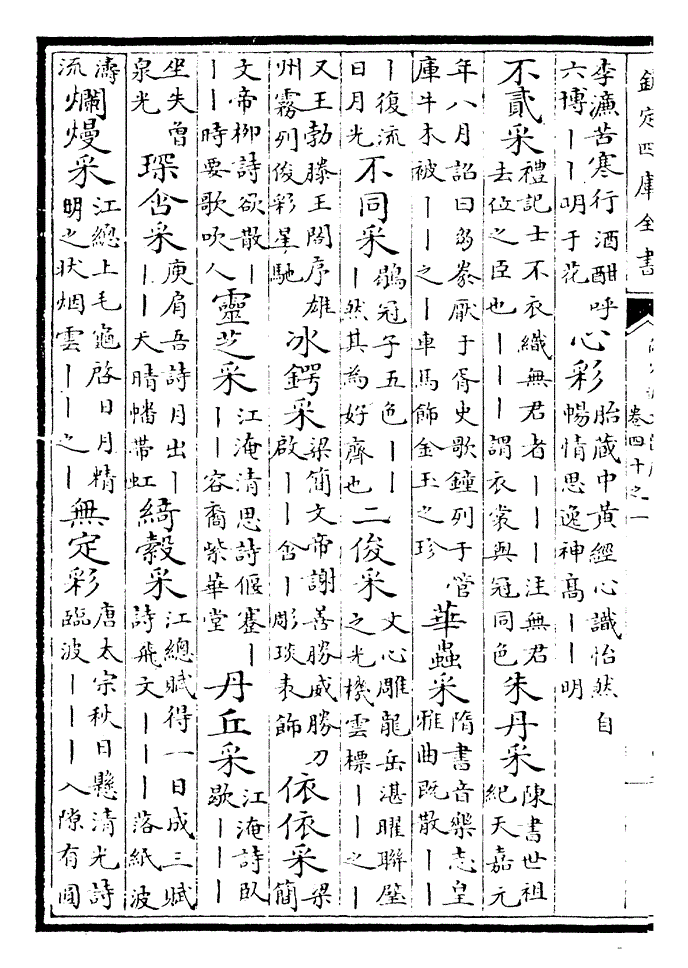 欽定四庫全書
卷四十之一
李㢘苦寒行酒酣呼
六博丨丨明于花
心彩
胎藏中黄經心識怡然自
暢情思逸神髙丨丨明
不貳采
禮記士不衣織無君者丨丨丨注無君
去位之臣也丨丨謂衣裳與冠同色
朱丹采
陳書世祖
紀天嘉元
年八月詔曰芻豢厭于胥史歌鐘列于管
庫牛木被丨丨之丨車馬飾金玉之珍
華蟲采
隋書音樂志皇
雅曲既散丨丨
丨復流
日月光
不同采
鶡冠子五色丨丨
丨然其為好齊也
二俊采
文心雕龍岳湛曜聯璧
之光機雲標丨丨之丨
又王勃滕王閣序雄
州霧列俊彩星馳
冰鍔采
梁簡文帝謝善勝威勝刀
啟丨丨含丨彫琰表飾
依依采
梁
簡
文帝栁詩欲散丨
丨丨時要歌吹人
靈芝采
江淹清思詩偃蹇丨
丨丨容裔紫華堂
丹丘采
江淹詩卧
歇丨丨丨
坐失曾
泉光
琛含采
庾肩吾詩月出丨
丨丨天晴幡帶虹
綺縠采
江總賦得一日成三賦
詩飛文丨丨丨落紙波
濤
流
爛熳采
江總上毛龜啓日月精
明之狀烟雲丨丨之丨
無定彩
唐太宗秋日懸清光詩
臨波丨丨丨入隙有圓